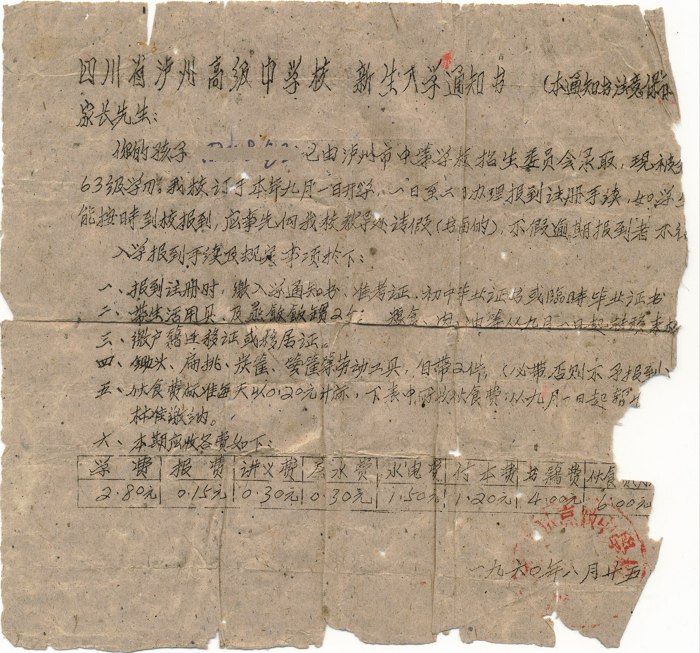 四川省泸州高级中学校 新生入学通知书 (本通知书注意保存
家长先生:
你的孩子 已由泸州市中等学校招生委员会录取, 现被
63级学 我校订于本年九月一日开学, 一日至 日办理报到注册手续, 如学生
能按时到校报到, 应事先向我校教导处请假(书面的), 不假逾期报到者不
入学报到手续及规定事项于下:
一、报到注册时, 缴入学通知书、准考证、初中毕业证书或临时毕业证书
二、带生活用具, 及蒸饭饭罐2个; 粮食、肉、油等从九月一日起
三、缴户籍迁移证或移居证。
四、锄头、扁挑、炭篓、篓篼等劳动工具, 自带2件。(必带否则不予报到)
五、伙食费标准每天以0.20元计标, 下表中所收伙食费, 从九月一日起暂
标准缴纳。
六、本期应收各费如下:
学费 报费 讲义费 蒸水费 水电费 付本费 书籍费 伙食
2.80元 0.15元 0.30元 0.30元 1.50元 1.20元 4.00元 6.00元
一九六0年八月廿五